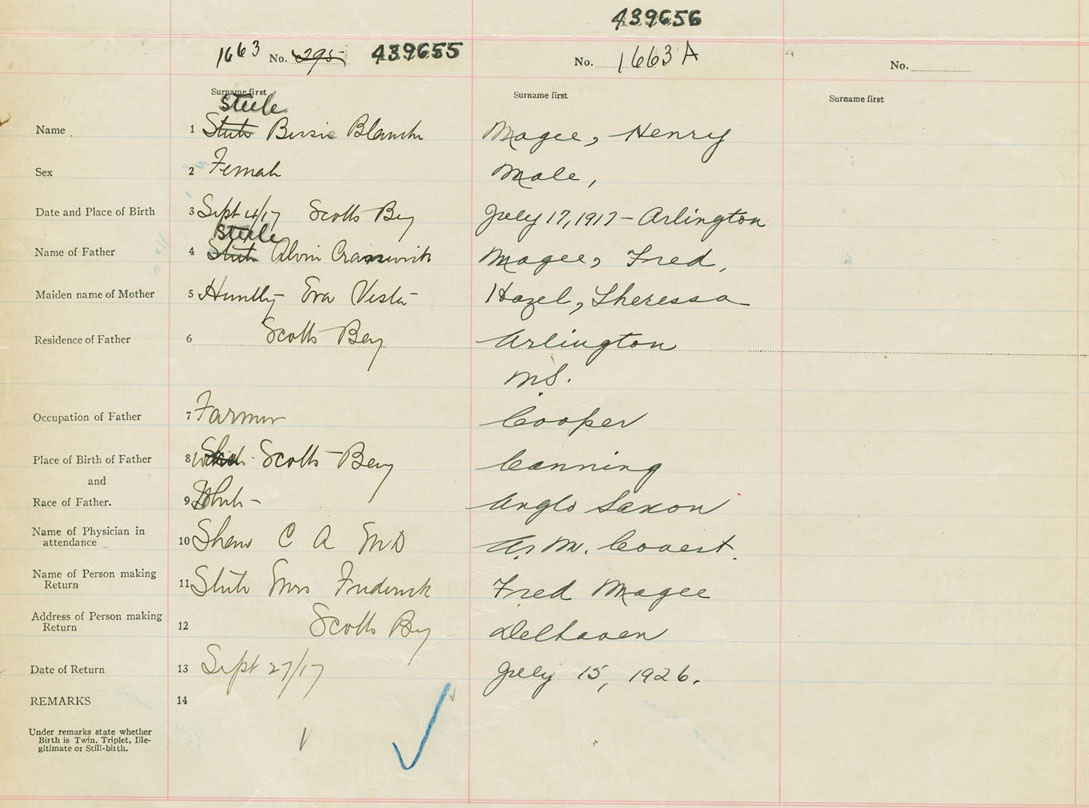 439656
1663 No. 295 439655 No. 1663 A No.
Surname first Surname first Surname first
Steele
Name 1 Blanche Magee, Henry
Sex 2 Female Male,
Date and Place of Birth 3 Sept 4/17 Scotts Bay July 17, 1917 - Arlington
Steele
Name of Father 4 Alvin Magee, Fred,
Maiden name of Mother 5 Huntly Eva Vesta Hazel, Theressa
Residence of Father 6 Scotts Bay Arlington
N.S.
Occupation of Father 7 Farmer Cooper
Place of Birth of Father 8 Scotts Bay Canning
and
Race of Father. 9 White - Anglo Saxon
Name of Physician in
attendance 10 Shaw C A MD A. M.
Name of Person making
Return 11 Mrs Frederick Fred Magee
Address of Person making
Return 12 Scotts Bay Delhaven
Date of Return 13 Sept 27/17 July 15, 1926.
REMARKS 14
Under remarks state whether
Birth is Twin, Triplet, Ille-
gitimate or Still-birth.